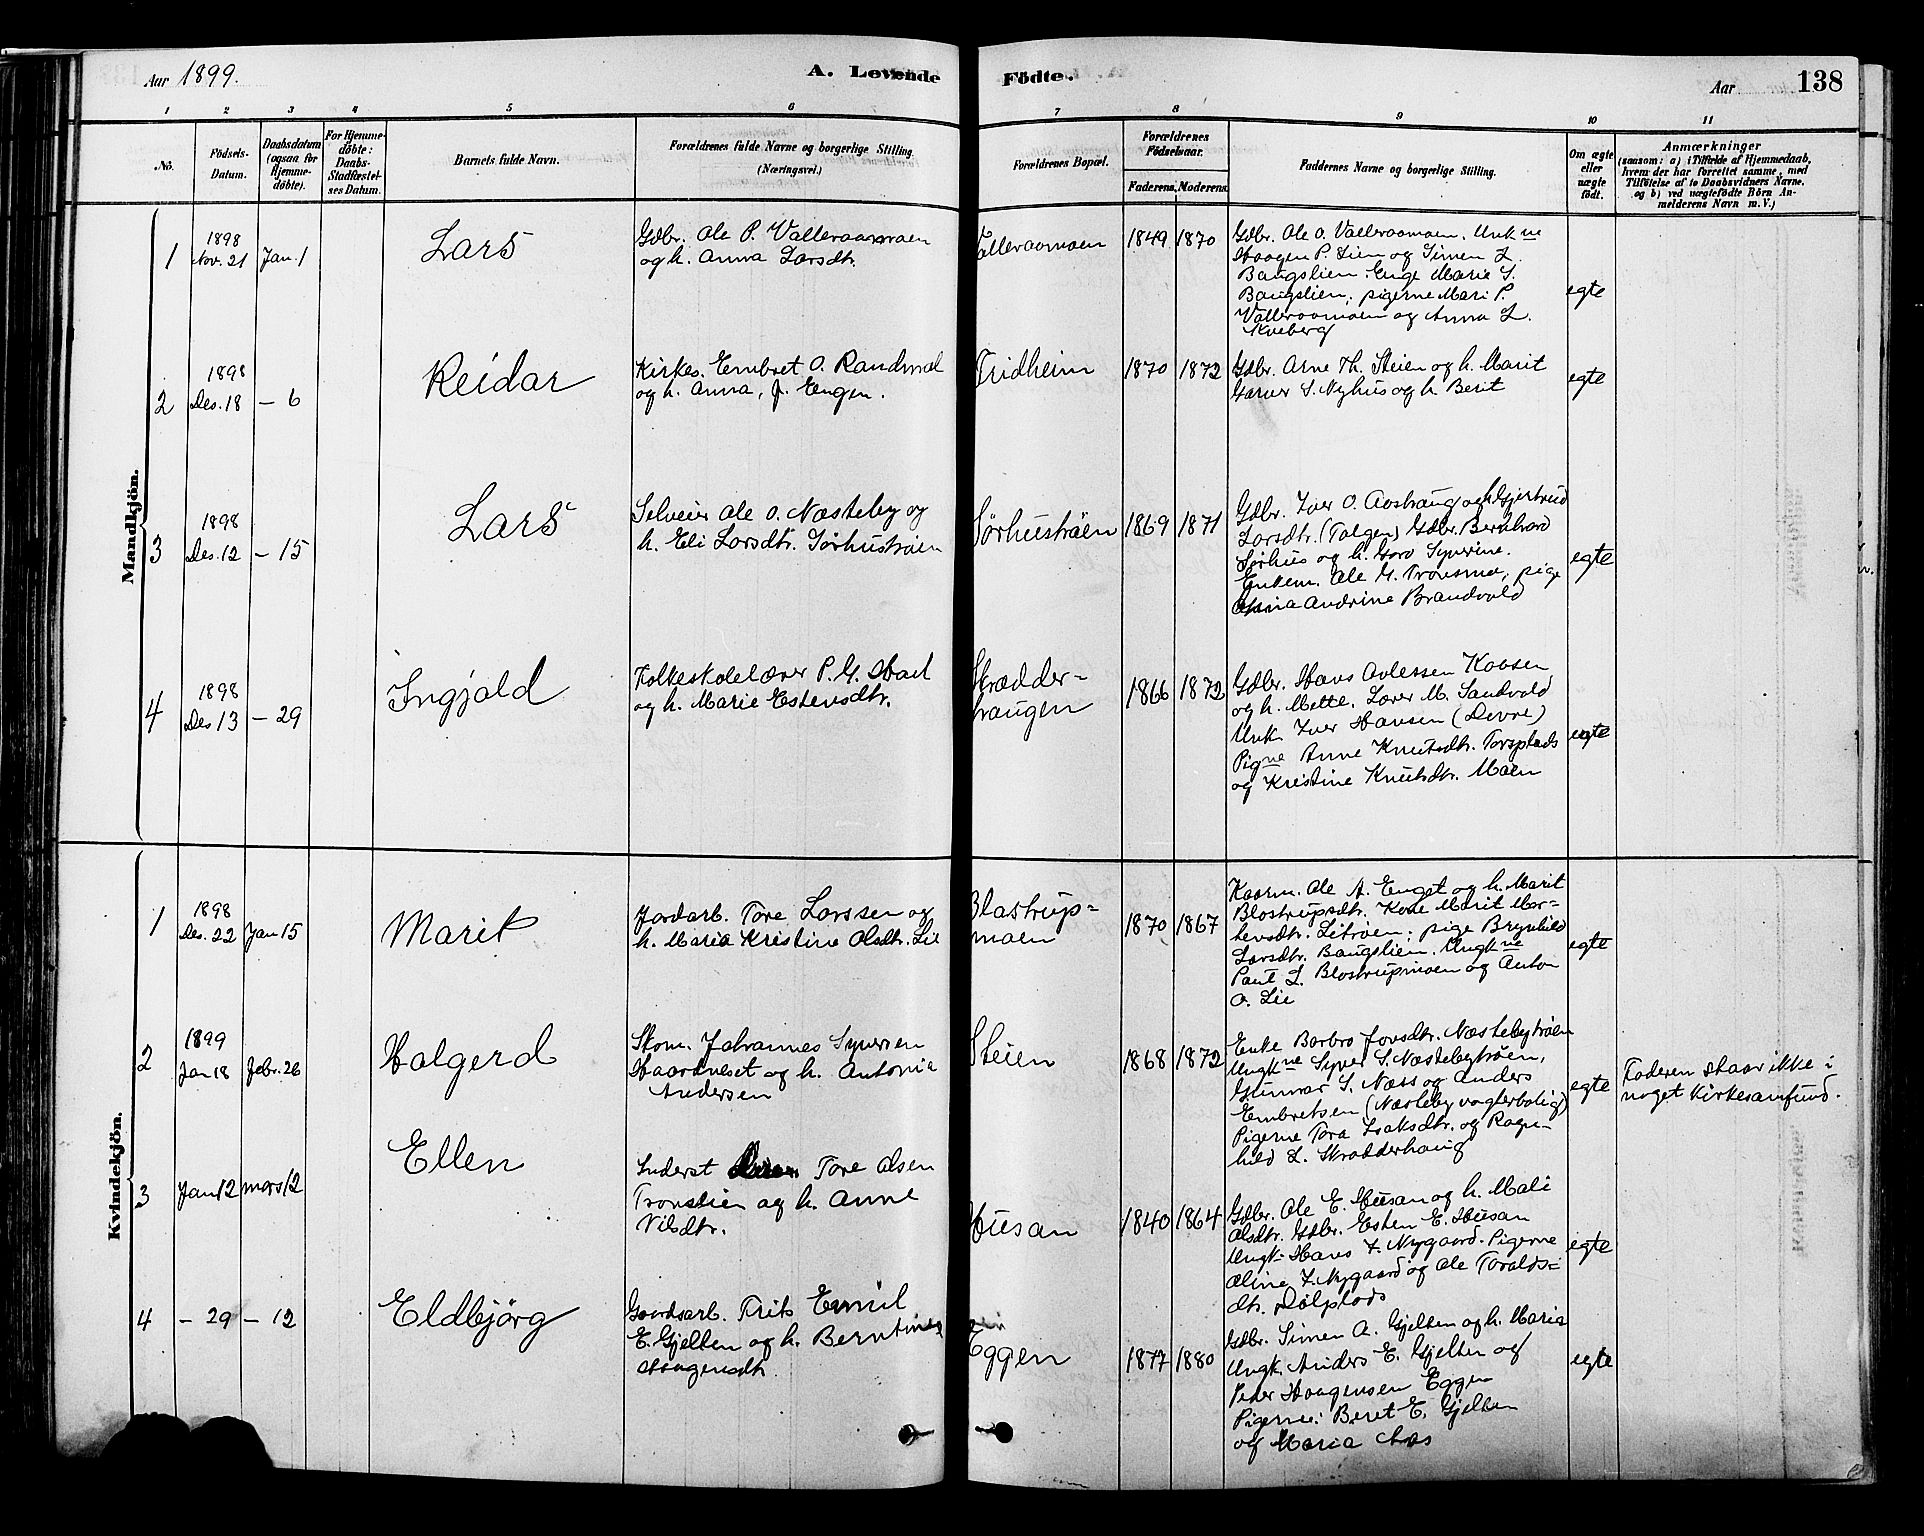 Aar 1899.
A. Levende
Födte.
Aar
138
1 2 3 4 5 6 7 8 9 10 11
No.
Födsels-
Datum.
Daabsdatum
(ogsaa for
Hjemme-
döbte).
For Hjemme-
döbte:
Daabs-
Stadfæstel-
ses Datum.
Barnets fulde Navn.
Forældrenes fulde Navne og borgerlige Stilling
(Næringsvei.)
Forældrenes Bopæl.
Forældrenes
Födselsaar.
Faderens. Moderens.
Faddernes Navne og borgerlige Stilling.
Om ægte
eller
uægte
födt.
Anmærkninger
(saasom: a) i Tilfælde af Hjemmedaab,
hvem der har forrettet samme, med
Tilföielse af to Daabsvidners Navne.
og b) ved uægtefödte Börn An-
melderens Navn m. V.)
Mandkjön.
1
1898
Nov. 21
Jan. 1
Lars
Gdbr. Ole P. Valleraamoen
og h. Anna Larsdtr.
Valleraamoen
1849
1870
Gdbr. Ole O. Valleraamoen. Unkne
Haagen P. Lien og Simen L.
Bangslien. Enge Marie S.
Bangslien, pigerne Mari P.
Valleraamoen og Anna L.
Kveberg
egte
2
1898
Des. 18
– 6
Reidar
Kirkes. Embret O. Randmæl
og h. Anna, f. Engen.
Fridheim
1870
1872
Gdbr. Arne Th. Steien og h. Marit
Garver S. Nyhus og h. Berit
egte
3
1898
Des. 12
– 15
Lars
Selveier Ole O. Næsteby og
h. Eli Larsdtr. Sørhustrøen
Sørhustrøen
1869
1871
Gdbr. Iver O. Aashaug og h Gjertrud
Larsdtr. (Tolgen) Gdbr. Bernhard
Sørhus og h. Goro Syverine.
Enkem. Ole G. Tronsmo, pige
Andrine Brandvold
egte
4
1898
Des 13
– 29
Ingjald
Folkeskolelærer P. G.
og h. Marie Estensdtr.
Skrædder-
haugen
1866
1872
Gdbr. Hans Avlessen Kaasen
og h. Mette. Lærer M. Sandvold
Unk. Iver Hansen (Dovre)
Pigne Anne Knutsdtr. Torsplads
og Kristine Knutsdtr. Moen
egte
Kvindekjön.
1
1898
Des. 22
Jan 15
Marit
Jordarb. Tore Larssen og
h. Maria Kristine Olsdtr. Lie
Blastrup-
moen
1870
1867
Kaarm. Ole A. Enget og h. Marit
Blostrupsdtr. Kone Marit Mor-
tensdtr. Litrøen; pige Brynhild
Larsdtr. Bangslien. Ungkne
Paul L. Blostrupmoen og Anton
O. Lie
egte
2
1899
Jan 18
Febr. 26
Halgerd
Skom. Johannes Syversen
Haardneset og h. Antonie
Andersen
Steien
1868
1872
Enke Barbro Jonsdtr. Næstebytrøen
Ungkne Syver S. Næstebytrøen,
Gunnar S. Næss og Anders
Embretsen (Næsteby vogterbolig)
Pigerne Tora Isaksdtr. og Ragn-
hild L. Skradderhaug
egte
Faderen staar ikke i
noget Kirkesamfund.
3
Jan 12
mars 12
Ellen
Inderst Tore Olsen
Tronslien og h. Anne
Nilsdtr.
Husan
1840
1864
Gdbr. Ole E. Husan og h. Mali
Olsdtr. Gdbr. Esten E. Husan
Ungk. Hans F. Nygaard. Pigerne
Oline F. Nygaard og Ole Toralds-
dtr. Dølplads
egte
4
– 29
– 12
Eldbjörg
Gaardsarb. Frits Emil
E. Gjelten og h. Berntine
Haagensdtr.
Eggen
1877
1880
Gdbr. Simen A. Gjelten og h. Maria
Ungk. Anders E. Gjelten og
Peder Haagensen Eggen
Pigerne: Beret E. Gjelten
og Maria Aas
egte